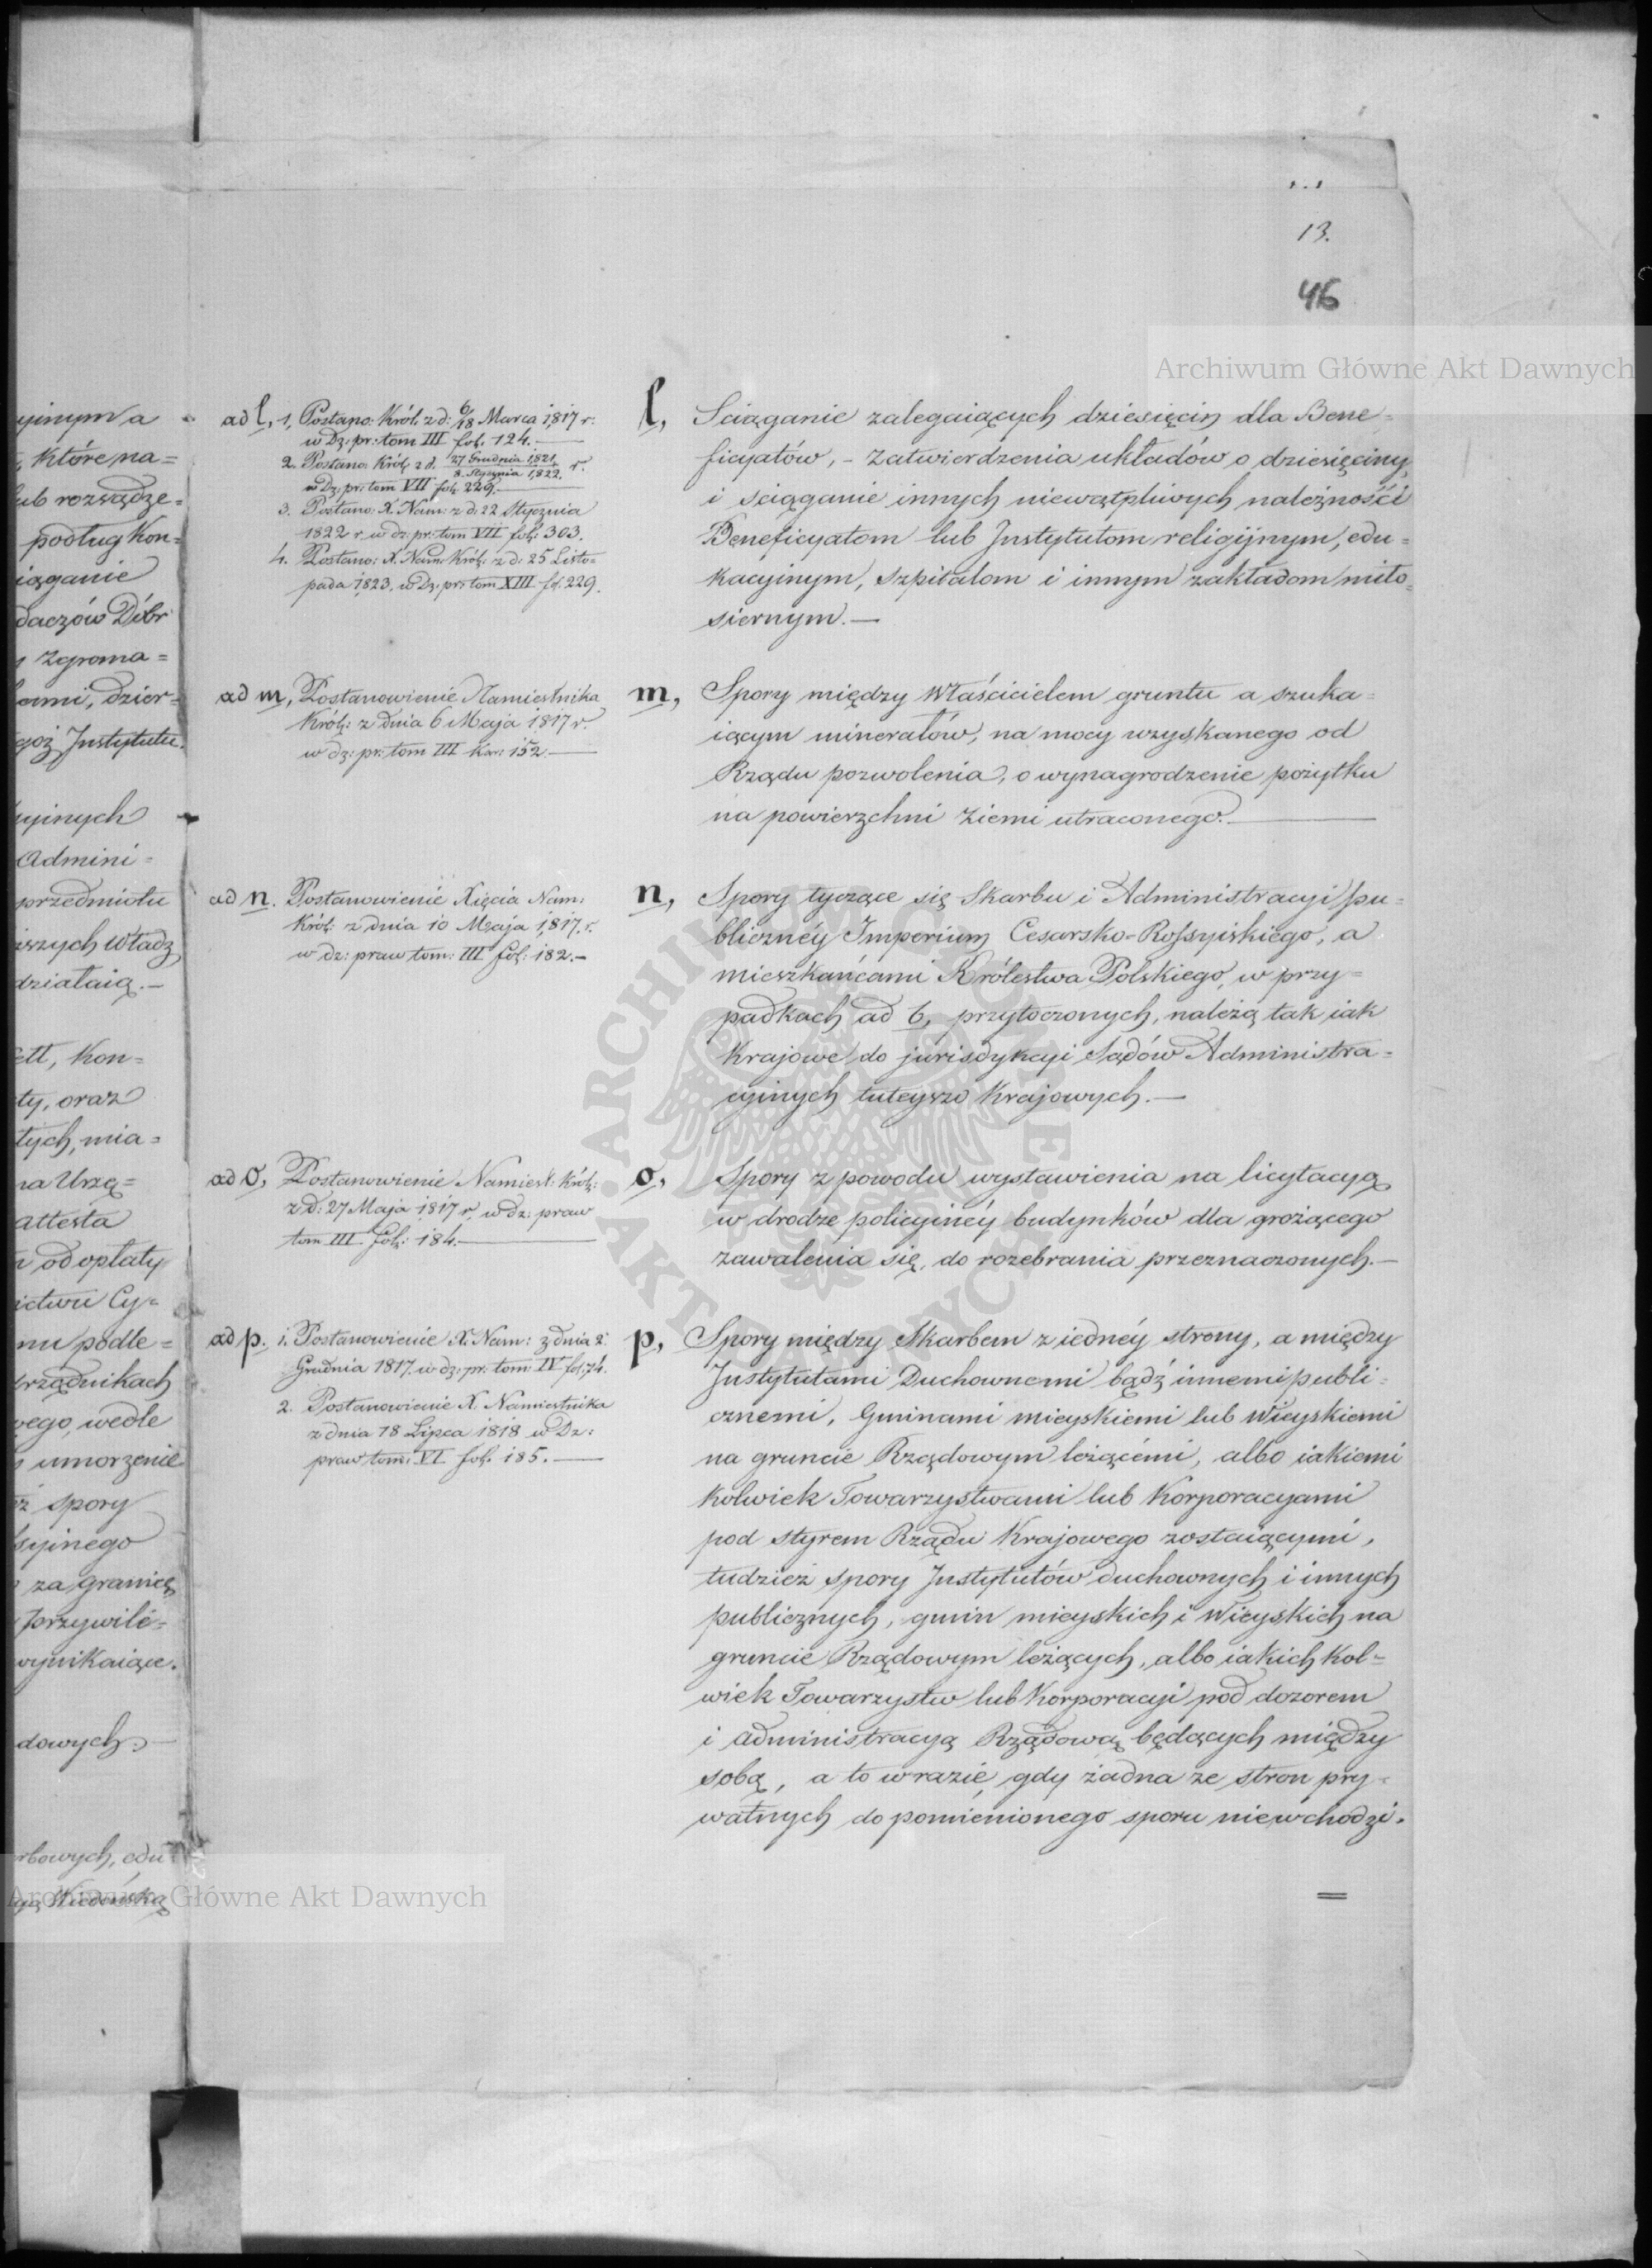 13.
46
Archiwum Główne Akt Dawnych
yinym a
które na=
ub rozsądze=
podług Kon=
iąganie
daczów Dóbr
Zgroma=
ami, dzier=
goż Instytutu.
yinych
Admini=
przedmiotu
Władz
działaią.—
Kon=
ty, oraz
tych, mia=
na Urzą=
attesta
od opłaty
ictwu Cy=
mu podle=
rzędnikach
wego, wedle
umorzenie
ż spory
syinego
za granicę
przywile=
wynikaiące.
dowych.—
rbowych, edu
ad l, 1, Postano: Król: z d: 6/18 Marca 1817 r.
w Dz: pr: tom III fol. 124.—
2. Postano: Król: z d. 27 Grudnia 1821/8. Stycznia 1822. r.
w Dz: pr: tom VII fol: 229.—
3. Postano: X. Nam: z d: 22 Stycznia
1822 r. w dz: pr: tom VII fol: 303.
4. Postano: X. Nam: Król: z d. 25 Listo=
pada 1823. w Dz: pr: tom XIII fol. 229.
ad m, Postanowienie Namiestnika
Król: z dnia 6 Maja 1817 r.
w dz: pr: tom III Kar: 152.—
ad n. Postanowienie Xięcia Nam:
Król: z dnia 10 Maja 1817. r.
w dz: praw tom: III fol: 182.—
ad o, Postanowienie Namiest: Król:
z d: 27 Maja 1817 r. w dz: praw
tom III. fol: 184.—
ad p. 1. Postanowienie X. Nam: z dnia 2.
Grudnia 1817. w dz: pr: tom IV fol. 74.
2. Postanowienie X. Namiestnika
z dnia 18 Lipca 1818 w Dz:
praw tom: VI fol. 185.—
l, Sciąganie zalegaiących dziesięcin dla Bene=
ficyatów, - Zatwierdzenia układów o dziesięciny,
i sciąganie innych niewątpliwych należności
Beneficyatom lub Instytutom religijnym, edu=
kacyinym, Szpitalom i innym zakładom miło=
siernym.—
m, Spory między Właścicielem gruntu a szuka=
iącym minerałów, na mocy uzyskanego od
Rządu pozwolenia, o wynagrodzenie pożytku
na powierzchni Ziemi utraconego.—
n, Spory tyczące się Skarbu i Administracyi pu=
blicznéy Imperium Cesarsko-Rossyiskiego, a
mieszkańcami Królestwa Polskiego, w przy=
padkach ad b, przytoczonych, należą tak iak
Krajowe do jurisdykcyi Sądów Administra=
cyinych tuteyszo Krajowych.—
o, Spory z powodu wystawienia na licytacyą
w drodze policyinéy budynków dla grożącego
zawalenia się, do rozebrania przeznaczonych.—
p, Spory między Skarbem z iednéy strony, a między
Instytutami Duchownemi bądź innemi publi=
cznemi, Gminami mieyskiemi lub Wieyskiemi
na gruncie Rządowym leżącémi, albo iakiemi
kolwiek Towarzystwami lub Korporacyami
pod styrem Rządu Krajowego zostaiącymi,
tudzież spory Instytutów duchownych i innych
publicznych, gmin mieyskich i Wieyskich na
gruncie Rządowym leżących, albo iakich kol=
wiek Towarzystw lub Korporacyi pod dozorem
i Administracyą Rządową będących między
sobą, a to w razie, gdy żadna ze stron pry=
watnych do pomienionego sporu nie wchodzi.
ARCHIWUM GŁÓWNE AKT DAWNYCH
Archiwum Główne Akt Dawnych